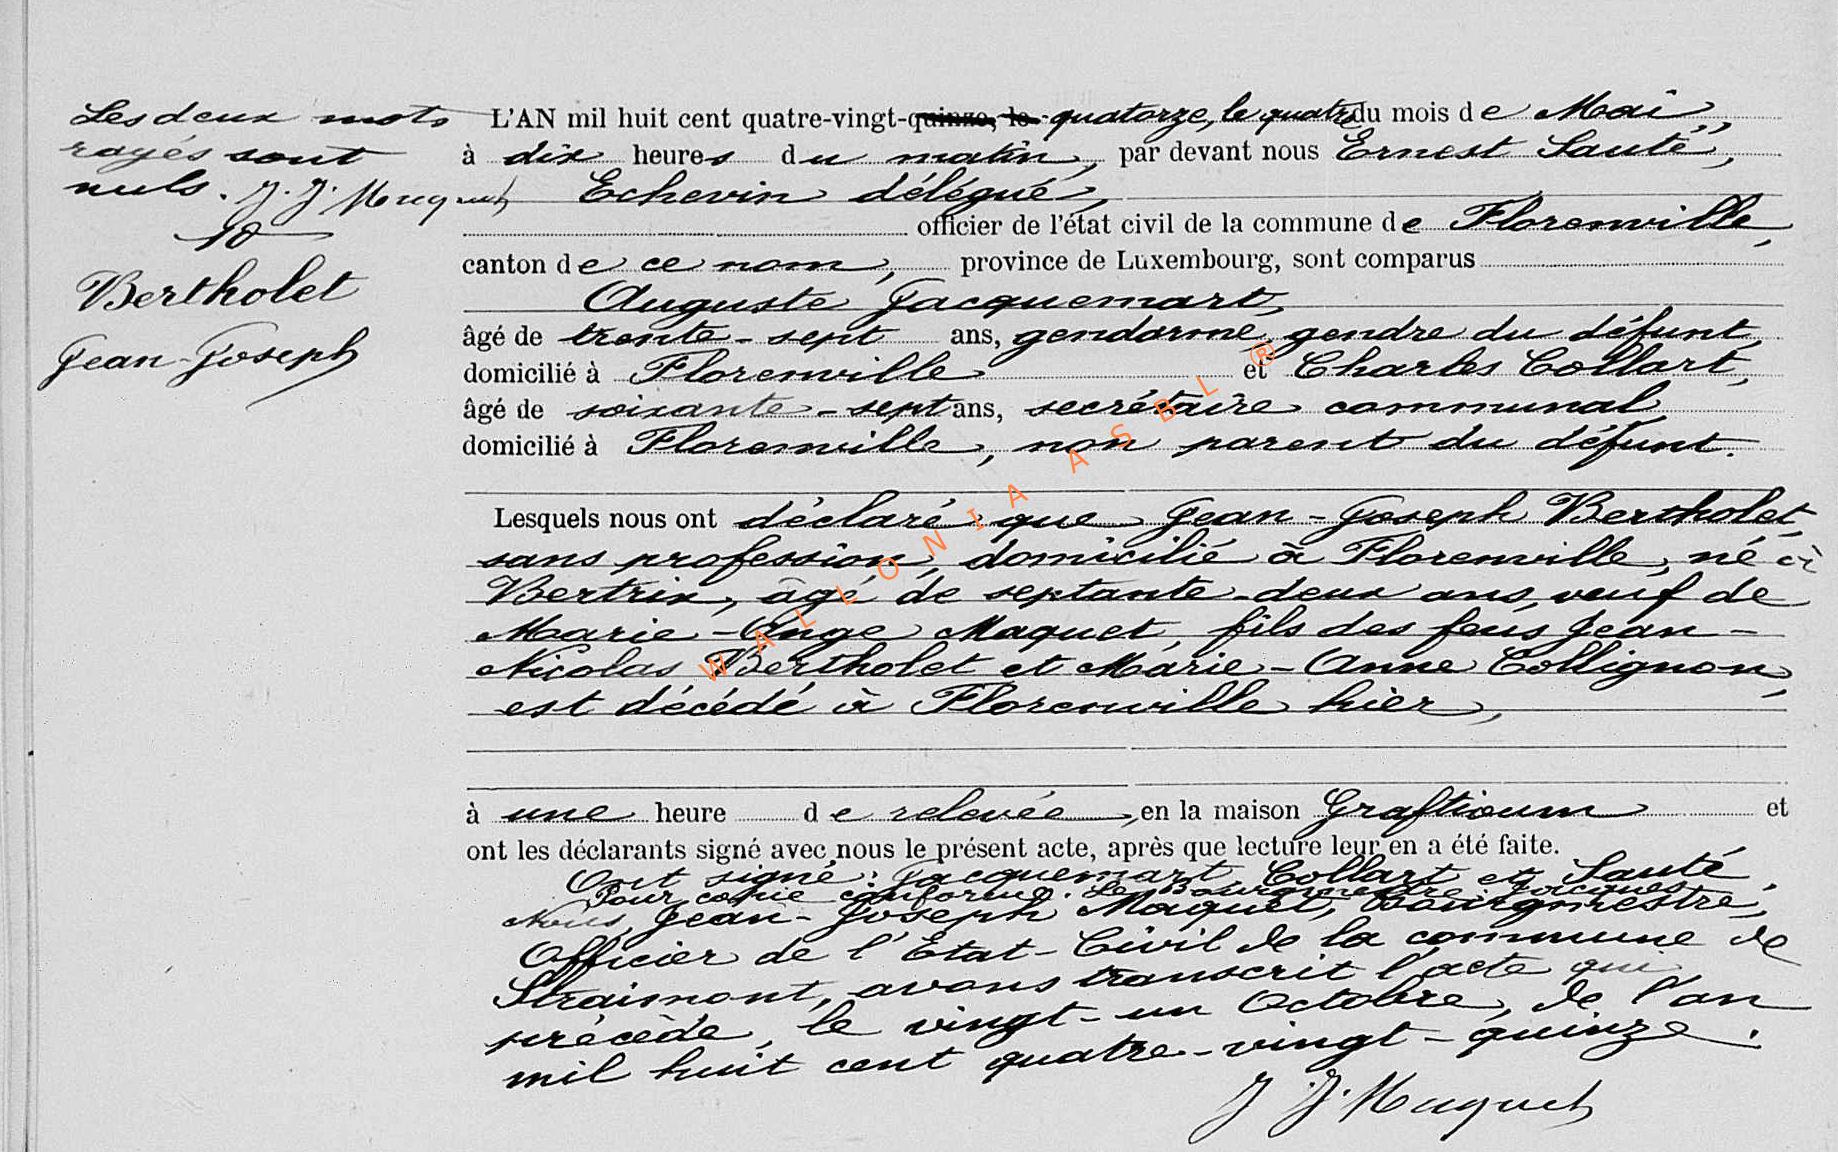 Les deux mots
rayés sont
nuls. J. J. Maquet
10
Bertholet
Jean-Joseph
L'AN mil huit cent quatre-vingt-quinze, le quatorze, le quatre du mois de Mai,
à dix heures du matin, par devant nous Ernest Sauté,
Echevin délégué,
officier de l'état civil de la commune de Florenville,
canton de ce nom, province de Luxembourg, sont comparus
Auguste Jacquemart,
âgé de trente-sept ans, gendarme, gendre du défunt,
domicilié à Florenville et Charles Collart,
âgé de soixante-sept ans, secrétaire communal,
domicilié à Florenville, non parent du défunt.
Lesquels nous ont déclaré que Jean-Joseph Bertholet,
sans profession, domicilié à Florenville, né à
Bertrix, âgé de septante-deux ans, veuf de
Marie-Ange Maquet, fils des feus Jean-
Nicolas Bertholet et Marie-Anne Collignon,
est décédé à Florenville hier,
à une heure de relevée, en la maison Graftiaum et
ont les déclarants signé avec nous le présent acte, après que lecture leur en a été faite.
Ont signé: Jacquemart, Collart et Sauté.
Pour copie conforme: Le Bourgmestre: Jacques
Nous, Jean-Joseph Maquet, Bourgmestre,
Officier de l'Etat-Civil de la commune de
Straimont, avons transcrit l'acte qui
précède, le vingt-un Octobre, de l'an
mil huit cent quatre-vingt-quinze.
J. J. Maquet
WALLONIA ASBL ®